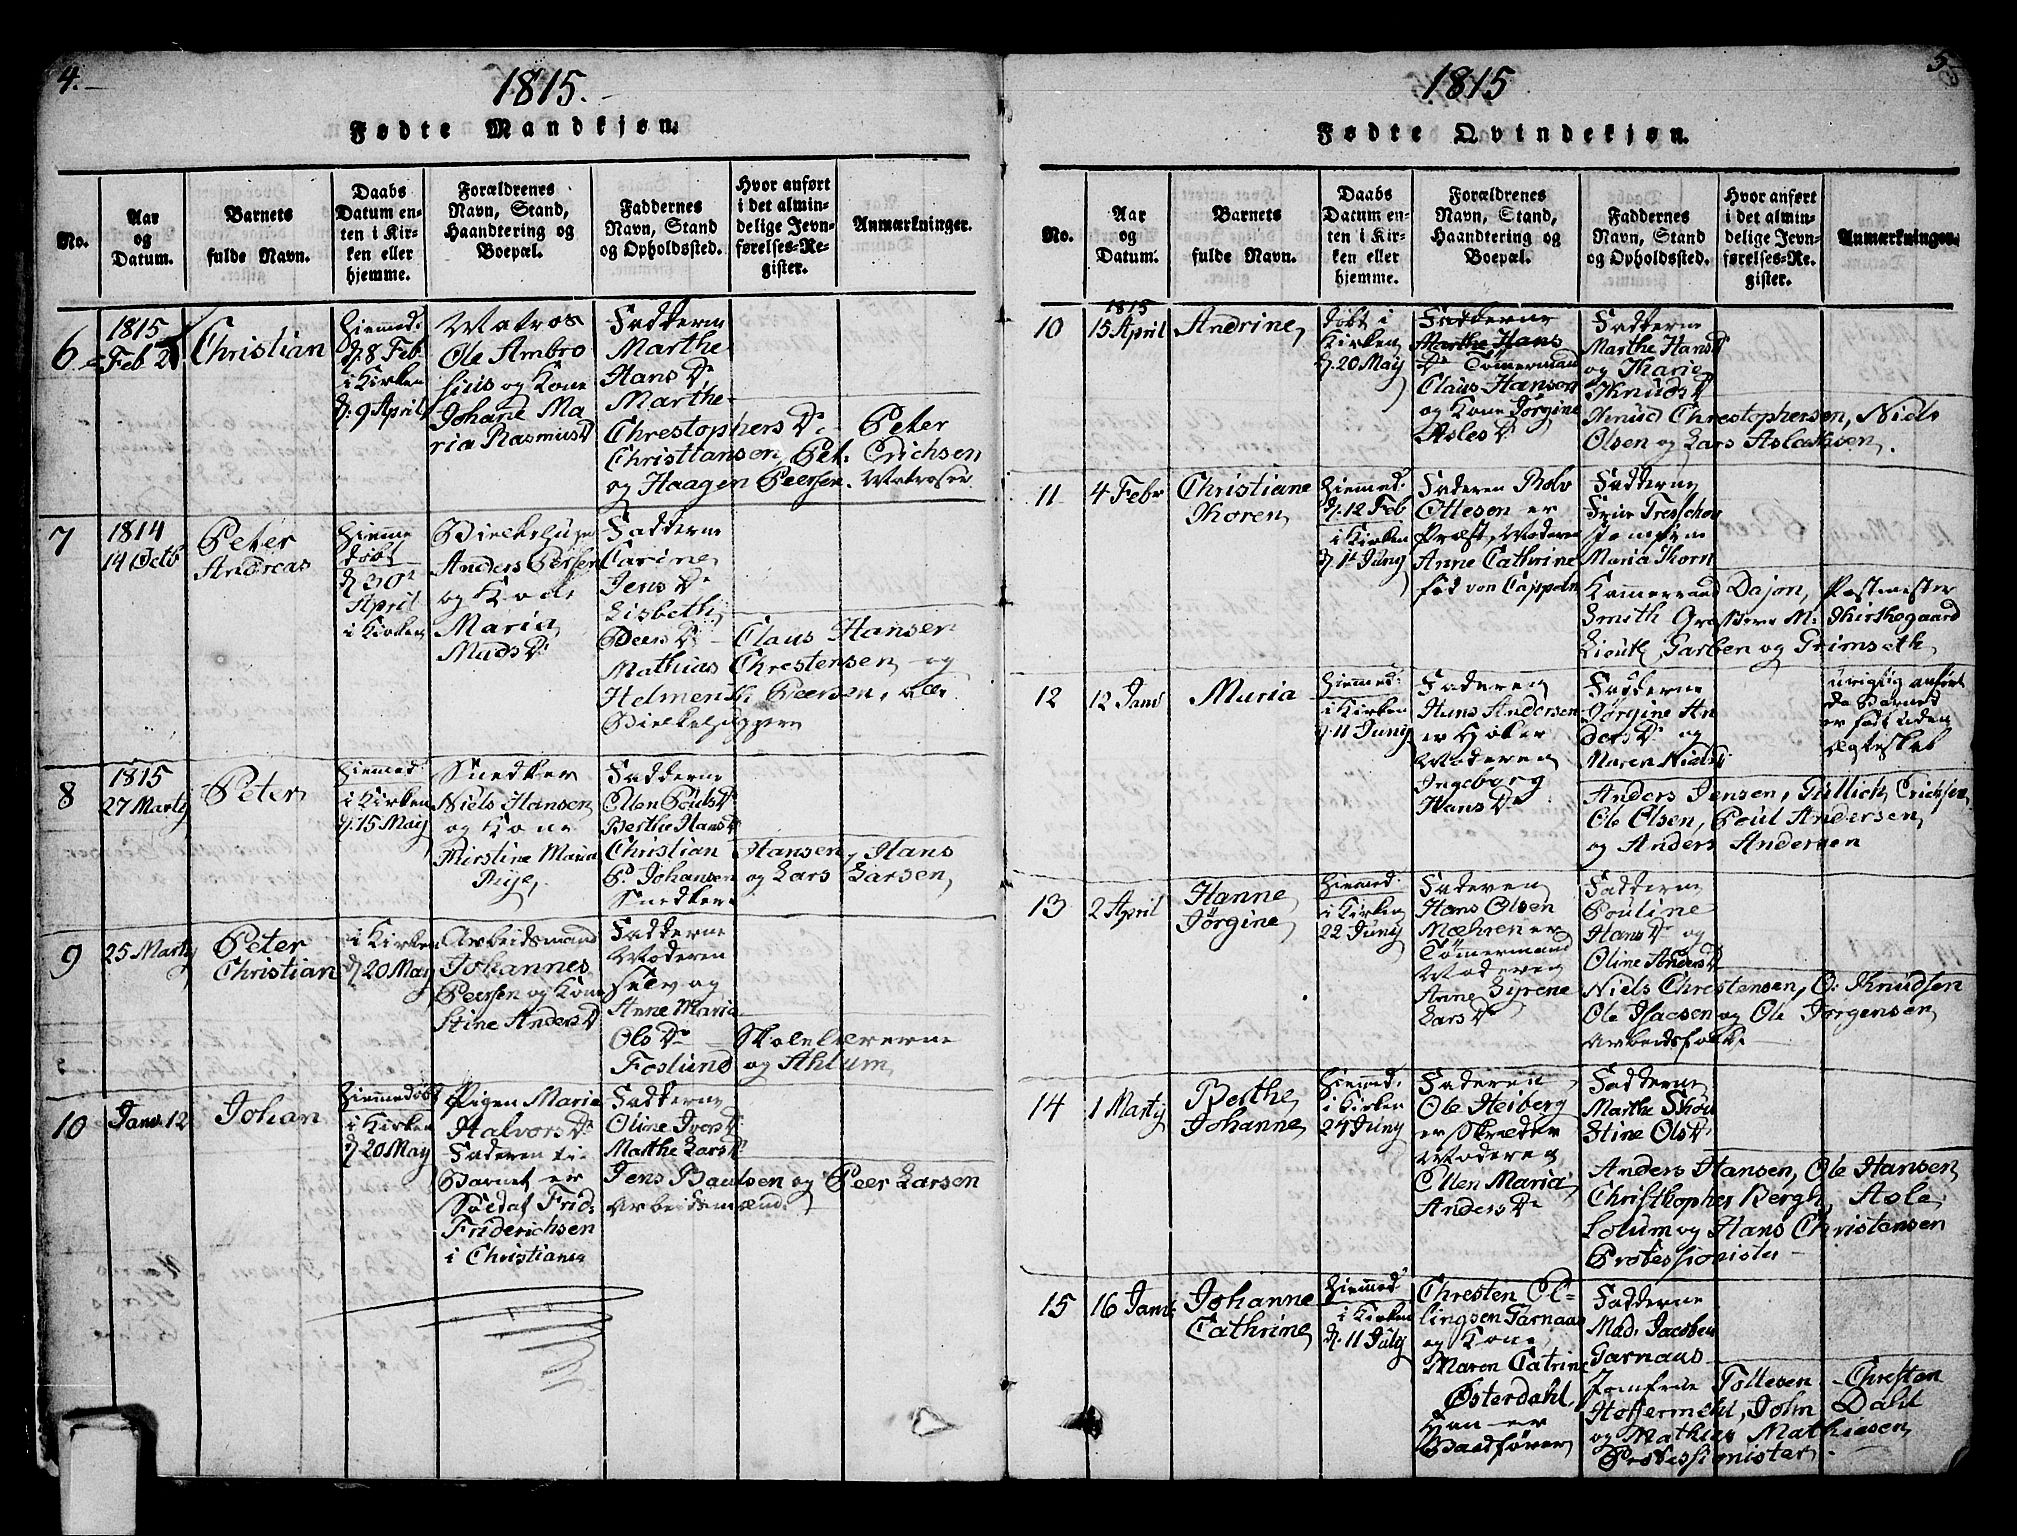 4.
1815.
Fødte Mandkjøn.
No.
Aar
og
Datum.
Barnets
fulde Navn.
Daabs
Datum en-
ten i Kir-
ken eller
hjemme.
Forældrenes
Navn, Stand,
Haandtering og
Boepæl.
Faddernes
Navn, Stand
og Opholdssted.
Hvor anført
i det almin-
delige Jevn-
førelses-Re-
gister.
Anmærkninger.
6
1815
Feb 2
Christian
Hiemmed:
d. 8 Feb
i Kirken
d. 9 April
Matros
Ole Ambro
sius og Kone
Johane Ma
ria RasmusD
Fadderne
Marthe
Hans Dr
Marthe
Chrestophers Dr Peter
Christiansen, Pet. Erichsen
og Haagen Peersen. Matroser
7
1814
14 Octb
Peter
Andreas
Hiemme
døbt
d 30
April
i Kirken
Anders Persen
og Kone
Maria
MudsDr
Fadderne
Carine
Jens Dr
Lisbeth
Peers Dr Claus Hansen
Mathias Chrestensen og
Peersen, alle
8
1815
27 Marty
Peter
Hiemmed:
i Kirken
d. 15 May
Snedker
Niels Hansen
og Kone
Kirstine Maria
Fadderne
Ellen PoulsDr
Berthe HansDr
Christian Hansen, Hans
P. Johansen og Lars Larsen
Snedkere
9
25 Marty
Peter
Christian
i Kirken
d 20 May
Arbeidsmand
Johannes
Peersen og Kone
Stine AndersD
Fadderne
Moderen
selv og
Anne Maria
Ols Dr Skolelærerne
Foslund og Ahlum
10
Janv. 12
Johan
Hiemmedøbt
i Kirken
d 20 May
Pigen Maria
HalvorsDr
Faderen til
Barnet er
Soldat Frid.
Friderichsen
i Christiania
Fadderne
Oline IversDr
Marthe LarsDr
Jens Paulsen og Peer Larsen
Arbeidsmænd.
1815
5
Fødte Qvindekjøn.
No.
Aar
og
Datum.
Barnets
fulde Navn.
Daabs
Datum en-
ten i Kir-
ken eller
hjemme.
Forældrenes
Navn, Stand,
Haandtering og
Boepæl.
Faddernes
Navn, Stand
og Opholdssted.
Hvor anført
i det almin-
delige Jevn-
førelses-Re-
gister.
Anmærkninger.
10
1815
15 April
Andrine
døbt i
Kirken
d. 20 May
Fadderne
Marthe Hans
Dr Tömermand
Claus Hansen
og Kone Jörgine
AslesDr
Fadderne
Marthe HansD
og Marie
KnudsD
Knud Chrestophersen, Niels
Olsen og Lars Aslaksen.
11
4 Febr
Christiane
Thoren
Hiemmed:
d. 12 Feb
i Kirken
d. 1t Juny
Faderen Rolv
Ottesen er
Præst, Moderen
Anne Cathrine
fød von Cappeln
Fadderne
Frue Treschou
Jomfrue
Maria Thorn
Kammerraad Dajon, Postmester
Smith M. Kirkegaard
Lieut. Garben og Grimseth
12
12 Janv
Maria
Hiemmed:
i Kirken
d 11 Juny
Faderen
Hans Andersen
er Höker
Moderen
Ingeborg
HansDr
Fadderne
Jørgine An
dersDr og
Maren NielsD
Anders Jensen, Gullich Erichsen,
Ole Olsen, Poul Andersen,
og Anders Andersen
urigtig anført
da Barnet
er født uden
Ægteskab
13
2 April
Hanne
Jörgine
Hiemmed:
i Kirken
22 Juny
Faderen
Hans Olsen
Mæhren er
Tömermand
Moderen
Anne Syrene
LarsDr
Fadderne
Pouline
HansDr og
Oline AndersD
Niels Chrestensen, O. Knudsen
Ole Isacsen og Ole Jörgensen
Arbeidsfolk.
14
1 Marty
Berthe
Johanne
Hiemmed:
i Kirken
24 Juny
Faderen
Ole Heiberg
er Skræder
Moderen
Ellen Maria
AndersDr
Fadderne
Marthe Skou
Stine OlsDr
Anders Hansen, Ole Hansen
Christopher Bergh, Asle
Solum og Hans Christansen
Professionister
15
16 Janv:
Johanne
Cathrine
Hiemmed:
i Kirken
d. 11 July
Chresten El-
lingsen Garnaas
og Kone
Maren Catrine
Østerdahl
Han er
Baadfører
Fadderne
Mad. Jacobsen
Garnaas
Jomfrue Tollesen Chrestan
Heffermehl, John Dahl
og Mathias Mathiesen
Professionister.